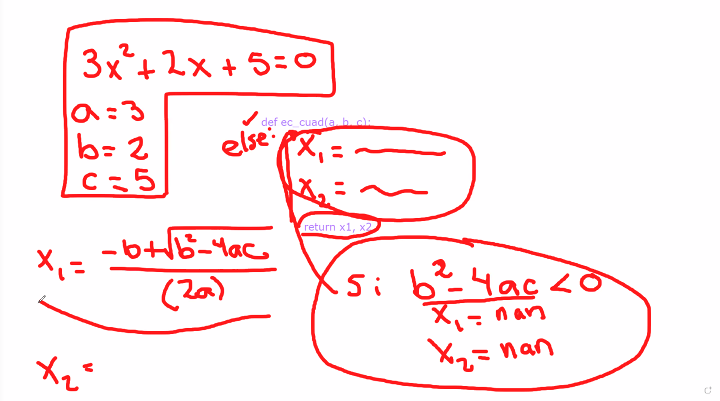 3x²+2x+5=0
a=3
b=2
c=5
def ec_cuad(a, b, c):
else:
x₁=
x₂=
return x1, x2
x₁= -b+√b²-4ac
(2a)
x₂=
Si b²-4ac<0
x₁=nan
x₂=nan